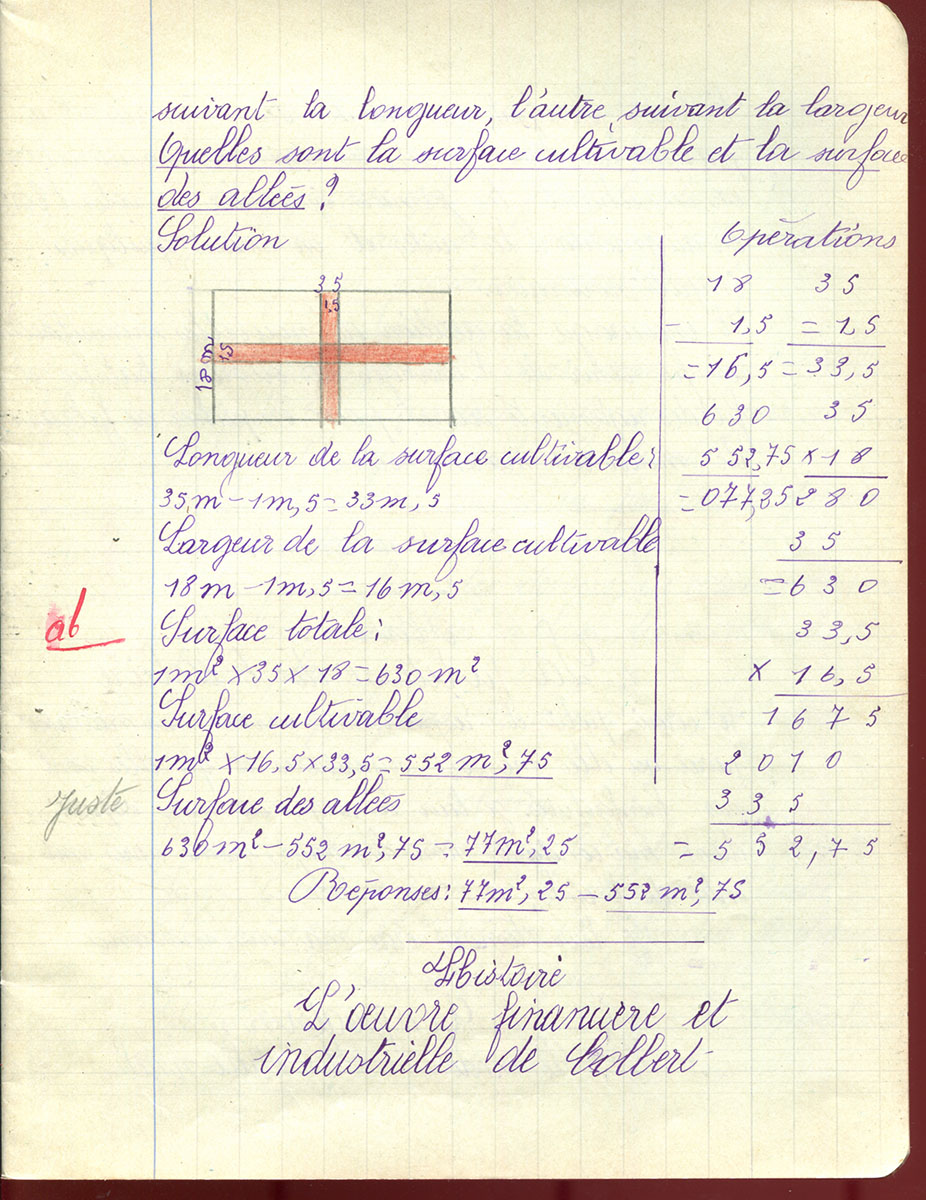 suivant la longueur, l'autre suivant la largeur
Quelles sont la surface cultivable et la surface
des allées ?
Solution
35
1,5
18 m
1,5
Longueur de la surface cultivable :
35m - 1m,5 = 33m,5
Largeur de la surface cultivable
18m - 1m,5 = 16m,5
ab
Surface totale :
1m² × 35 × 18 = 630m²
Surface cultivable
1m² × 16,5 × 33,5 = 552m²,75
Juste
Surface des allées
630m² - 552m²,75 = 77m²,25
Réponses : 77m²,25 - 552m²,75
Opérations
18 35
- 1,5 = 1,5
= 16,5 = 33,5
630 35
552,75 × 18
= 077,25 280
35
= 630
33,5
× 16,5
1675
2010
335
= 552,75
Histoire
L'œuvre financière et
industrielle de Colbert